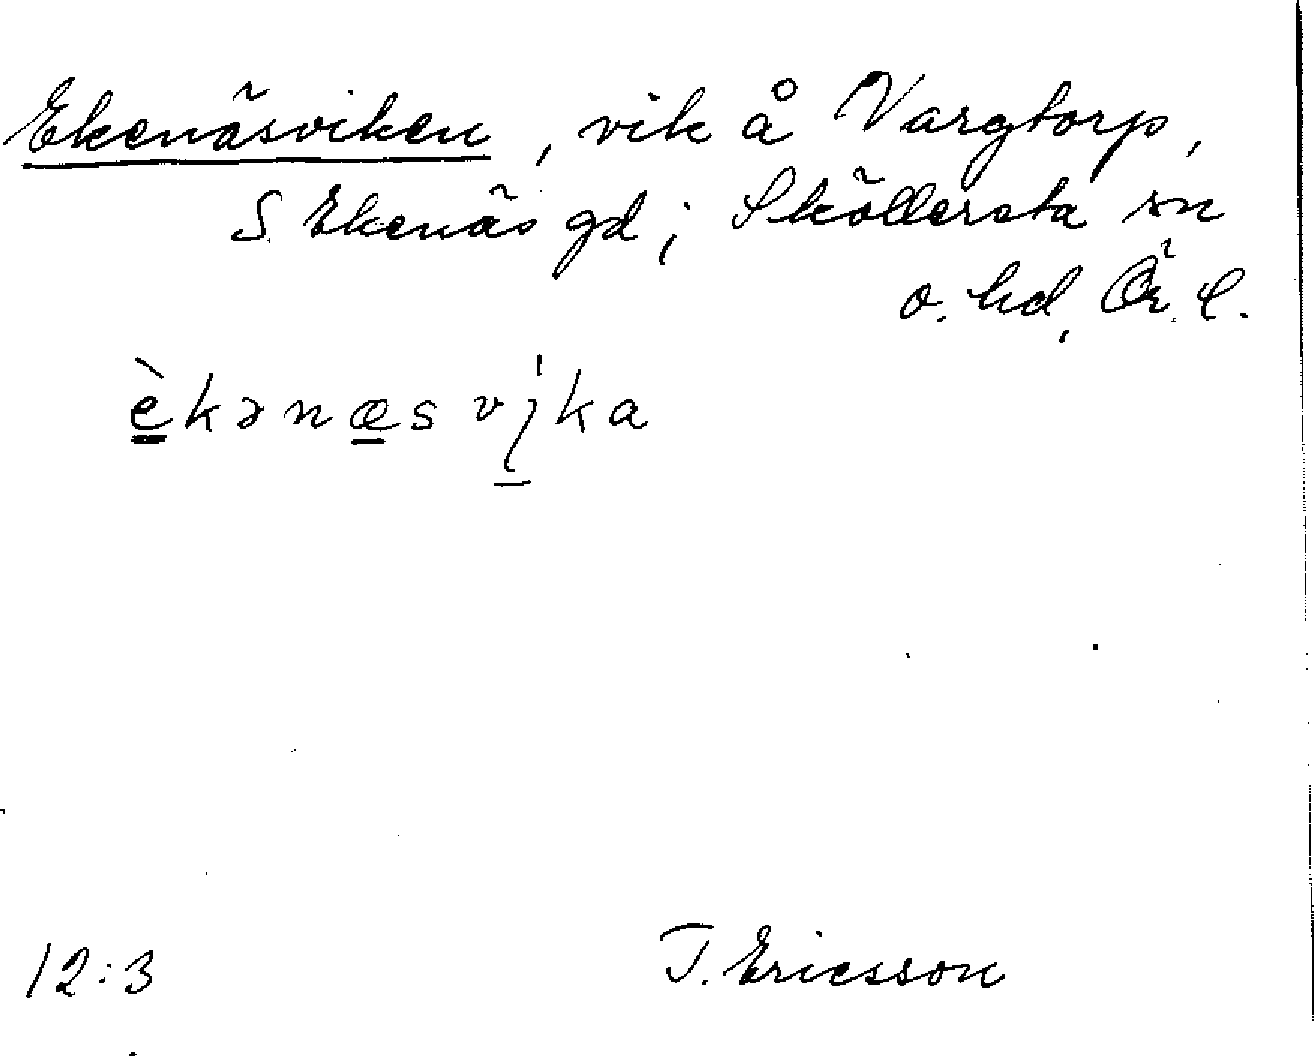 Ekenäsviken, vik å Vargtorp,
S. Ekenäs gd; Sköllersta sn
o. hd, Ör. l.
è̳kənæ̲svi̲ka
12:3 T. Ericsson